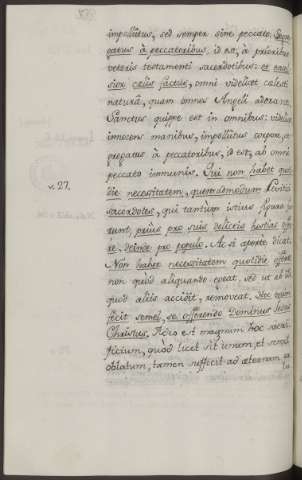 impollutus, sed semper sine peccato. Segre-
gatus à peccatoribus, id est, à prioribus
veteris testamenti sacerdotibus: et excel-
sior cœlis factus, omni videlicet cœlesti
naturâ, quam omnes Angeli adorant.
Sanctus quippe est in omnibus: videlicet
innocens manibus, impollutus corpore, se-
gregatus à peccatoribus, id est, ab omni
peccato immunis. Qui non habet quoti-
v. 27. die necessitatem, quemadmodum
sacerdotes, qui tantum istius figura
runt, priùs pro suis delictis hostias offer-
re, deinde pro populo. Ac si aperte dicat:
Non habet necessitatem quotidie offerre
non quòd aliquando egeat, sed ut ab illo
quod aliis accidit, removeat. Hoc enim
fecit semel, se offerendo Dominus Jesus
Christus. Adeo est magnum hoc sacri-
ficium, quòd licet sit unum, et semel
oblatum, tamen sufficit ad æternam sa-
lu